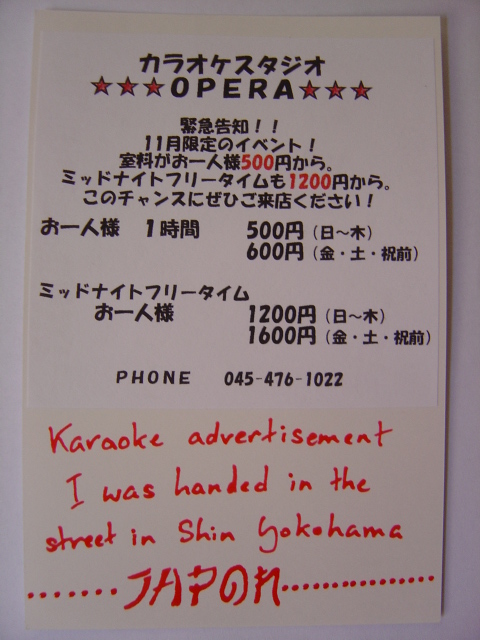 カラオケスタジオ
★★★OPERA★★★
緊急告知！！
11月限定のイベント！
室料がお一人様500円から。
ミッドナイトフリータイムも1200円から。
このチャンスにぜひご来店ください！
お一人様　１時間　500円（日～木）
600円（金・土・祝前）
ミッドナイトフリータイム
お一人様　1200円（日～木）
1600円（金・土・祝前）
PHONE　045-476-1022
Karaoke advertisement
I was handed in the
street in Shin Yokohama
........JAPON...............